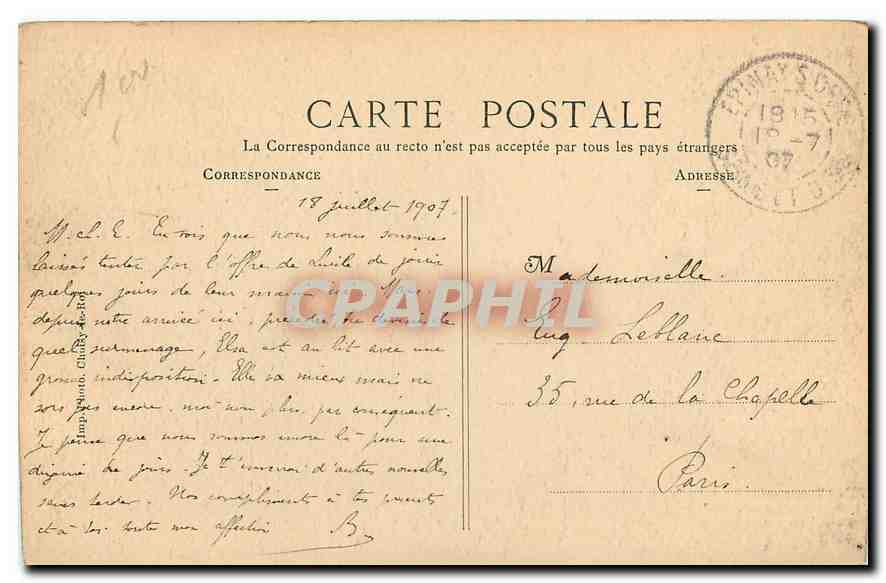 CARTE POSTALE
La Correspondance au recto n'est pas acceptée par tous les pays étrangers
CORRESPONDANCE
ADRESSE
EPINAY S ORGE
18 15
18 -7
07
SEINE ET OISE
18 juillet 1907.
M. ch. E. Tu vois que nous nous sommes
laissés tenter par l'offre de Lucile de jouir
quelques jours de leur maison ici. Mais
depuis notre arrivée ici,
quel surmenage, Elsa est au lit avec une
grosse indisposition. Elle va mieux mais ne
sors pas encore, moi non plus par conséquent.
Je pense que nous sommes encore là pour une
dizaine de jours. Je t'enverrai d'autres nouvelles
sans tarder. Nos compliments à tes parents
et à toi toute mon affection
B.
Mademoiselle.
Eug. Leblanc
35, rue de la Chapelle
Paris.
Imp. Photo. Choisy-le-Roi
CPAPHIL